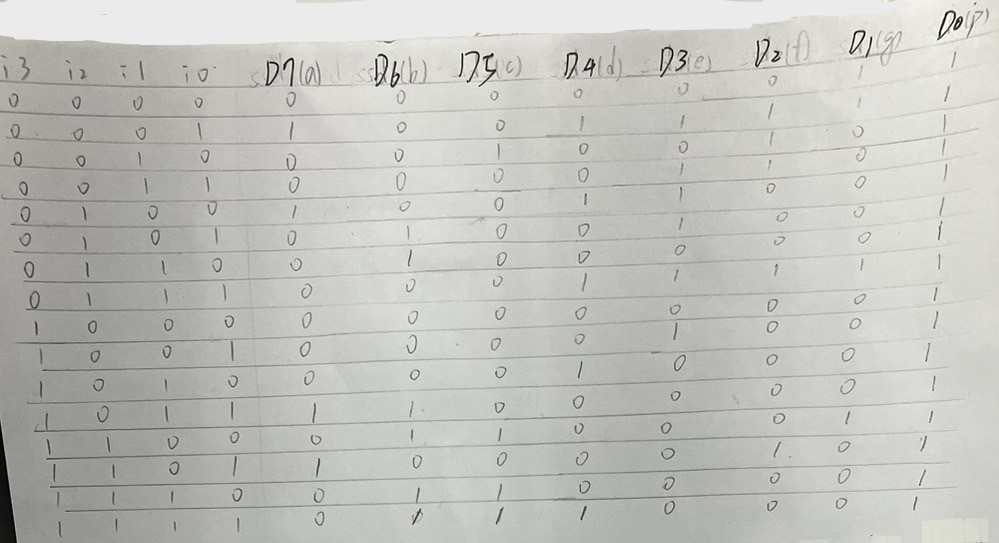 i3 i2 i1 i0 D7(a) D6(b) D5(c) D4(d) D3(e) D2(f) D1(g) D0(p)
0 0 0 0 0 0 0 0 0 0 1 1
0 0 0 1 1 0 0 1 1 1 1 1
0 0 1 0 0 0 1 0 0 1 0 1
0 0 1 1 0 0 0 0 1 1 0 1
0 1 0 0 1 0 0 1 1 0 0 1
0 1 0 1 0 1 0 0 1 0 0 1
0 1 1 0 0 1 0 0 0 0 0 1
0 1 1 1 0 0 0 1 1 1 1 1
1 0 0 0 0 0 0 0 0 0 0 1
1 0 0 1 0 0 0 0 1 0 0 1
1 0 1 0 0 0 0 1 0 0 0 1
1 0 1 1 1 1 0 0 0 0 0 1
1 1 0 0 0 1 1 0 0 0 1 1
1 1 0 1 1 0 0 0 0 1 0 1
1 1 1 0 0 1 1 0 0 0 0 1
1 1 1 1 0 1 1 1 0 0 0 1